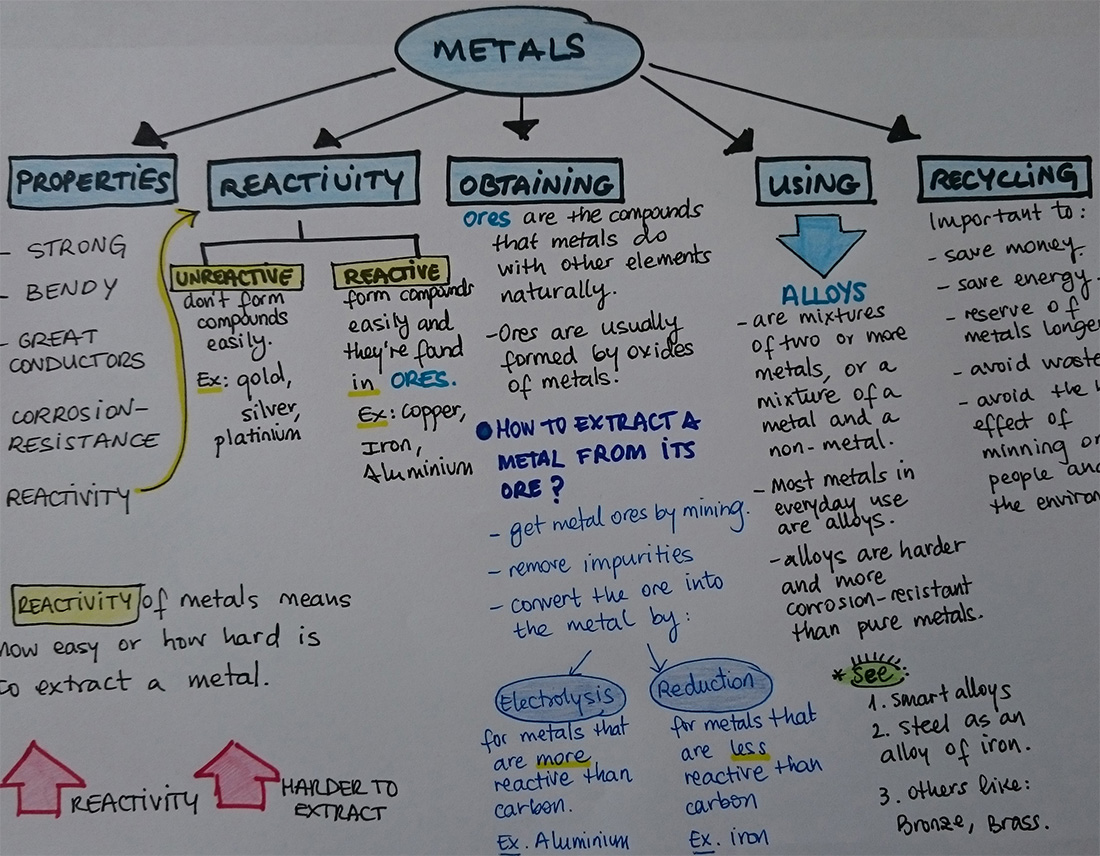 METALS
PROPERTIES
- STRONG
- BENDY
- GREAT
CONDUCTORS
CORROSION-
RESISTANCE
REACTIVITY
REACTIVITY
UNREACTIVE
don't form
compounds
easily.
Ex: gold,
silver,
platinium
REACTIVE
form compounds
easily and
they're found
in ORES.
Ex: copper,
Iron,
Aluminium
OBTAINING
Ores are the compounds
that metals do
with other elements
naturally.
- Ores are usually
formed by oxides
of metals.
HOW TO EXTRACT A
METAL FROM ITS
ORE?
- get metal ores by mining.
- remove impurities
- convert the ore into
the metal by:
Electrolysis
for metals that
are more
reactive than
carbon.
Ex. Aluminium
Reduction
for metals that
are less
reactive than
carbon
Ex. iron
USING
ALLOYS
- are mixtures
of two or more
metals, or a
mixture of a
metal and a
non-metal.
- Most metals in
everyday use
are alloys.
- alloys are harder
and more
corrosion-resistant
than pure metals.
* See
1. smart alloys
2. steel as an
alloy of iron.
3. others like:
Bronze, Brass.
RECYCLING
Important to:
- save money.
- save energy.
- reserve of
metals longer
- avoid waste
- avoid the
effect of
minning on
people and
the environ
REACTIVITY of metals means
how easy or how hard is
to extract a metal.
REACTIVITY
HARDER TO
EXTRACT